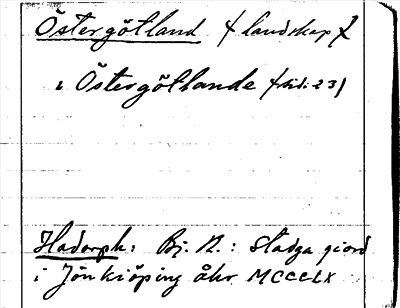 Östergötland (landskap)
i Östergötlande (sid. 23)
Hadorph: Bj. R.: Stadga giord
i Jönkiöping åhr MCCCLX